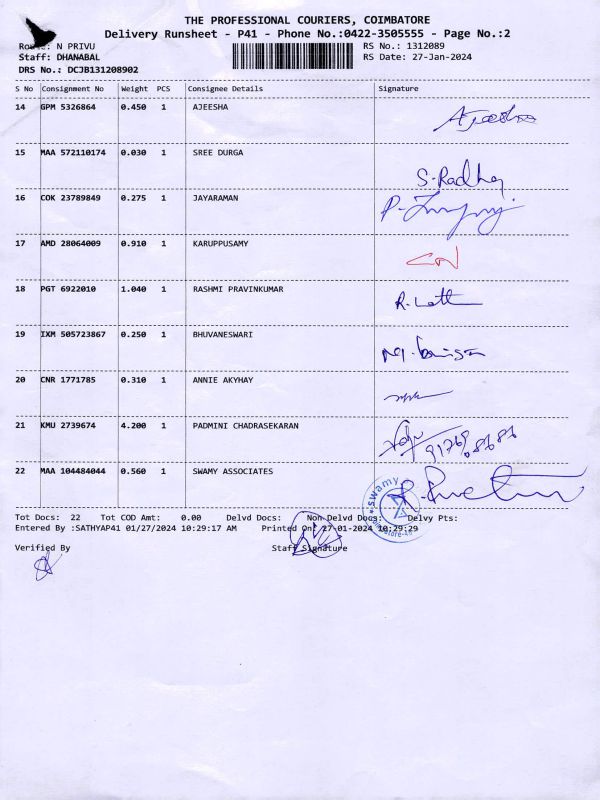 THE PROFESSIONAL COURIERS, COIMBATORE
Delivery Runsheet - P41 - Phone No.:0422-3505555 - Page No.:2
Route: N PRIVU RS No.: 1312089
Staff: DHANABAL RS Date: 27-Jan-2024
DRS No.: DCJB131208902
S No Consignment No Weight PCS Consignee Details Signature
14 GPM 5326864 0.450 1 AJEESHA Ajeesha
15 MAA 572110174 0.030 1 SREE DURGA S.Radha
16 COK 23789849 0.275 1 JAYARAMAN
17 AMD 28064009 0.910 1 KARUPPUSAMY
18 PGT 6922010 1.040 1 RASHMI PRAVINKUMAR
19 IXM 505723867 0.250 1 BHUVANESWARI
20 CNR 1771785 0.310 1 ANNIE AKYHAY
21 KMU 2739674 4.200 1 PADMINI CHADRASEKARAN
22 MAA 104484044 0.560 1 SWAMY ASSOCIATES swamy
Tot Docs: 22 Tot COD Amt: 0.00 Delvd Docs: Non Delvd Docs: Delvy Pts:
Entered By :SATHYAP41 01/27/2024 10:29:17 AM Printed On: 27-01-2024 10:29:29
Verified By Staff Signature